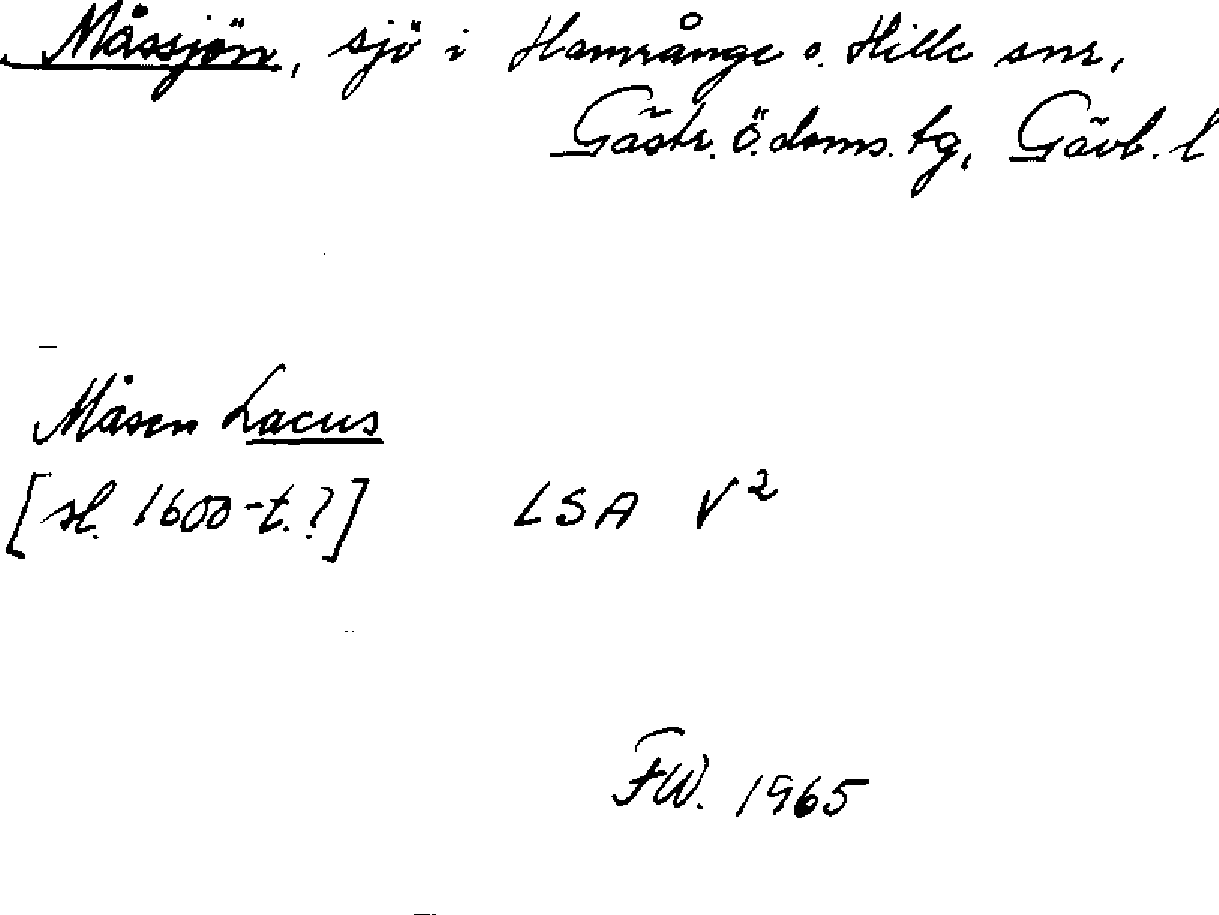 Måssjön, sjö i Hamrånge o. Hille snr,
Gästr. ö. doms. tg, Gävb. l
Måsen Lacus
[sl. 1600-t.?] LSA V²
FW. 1965